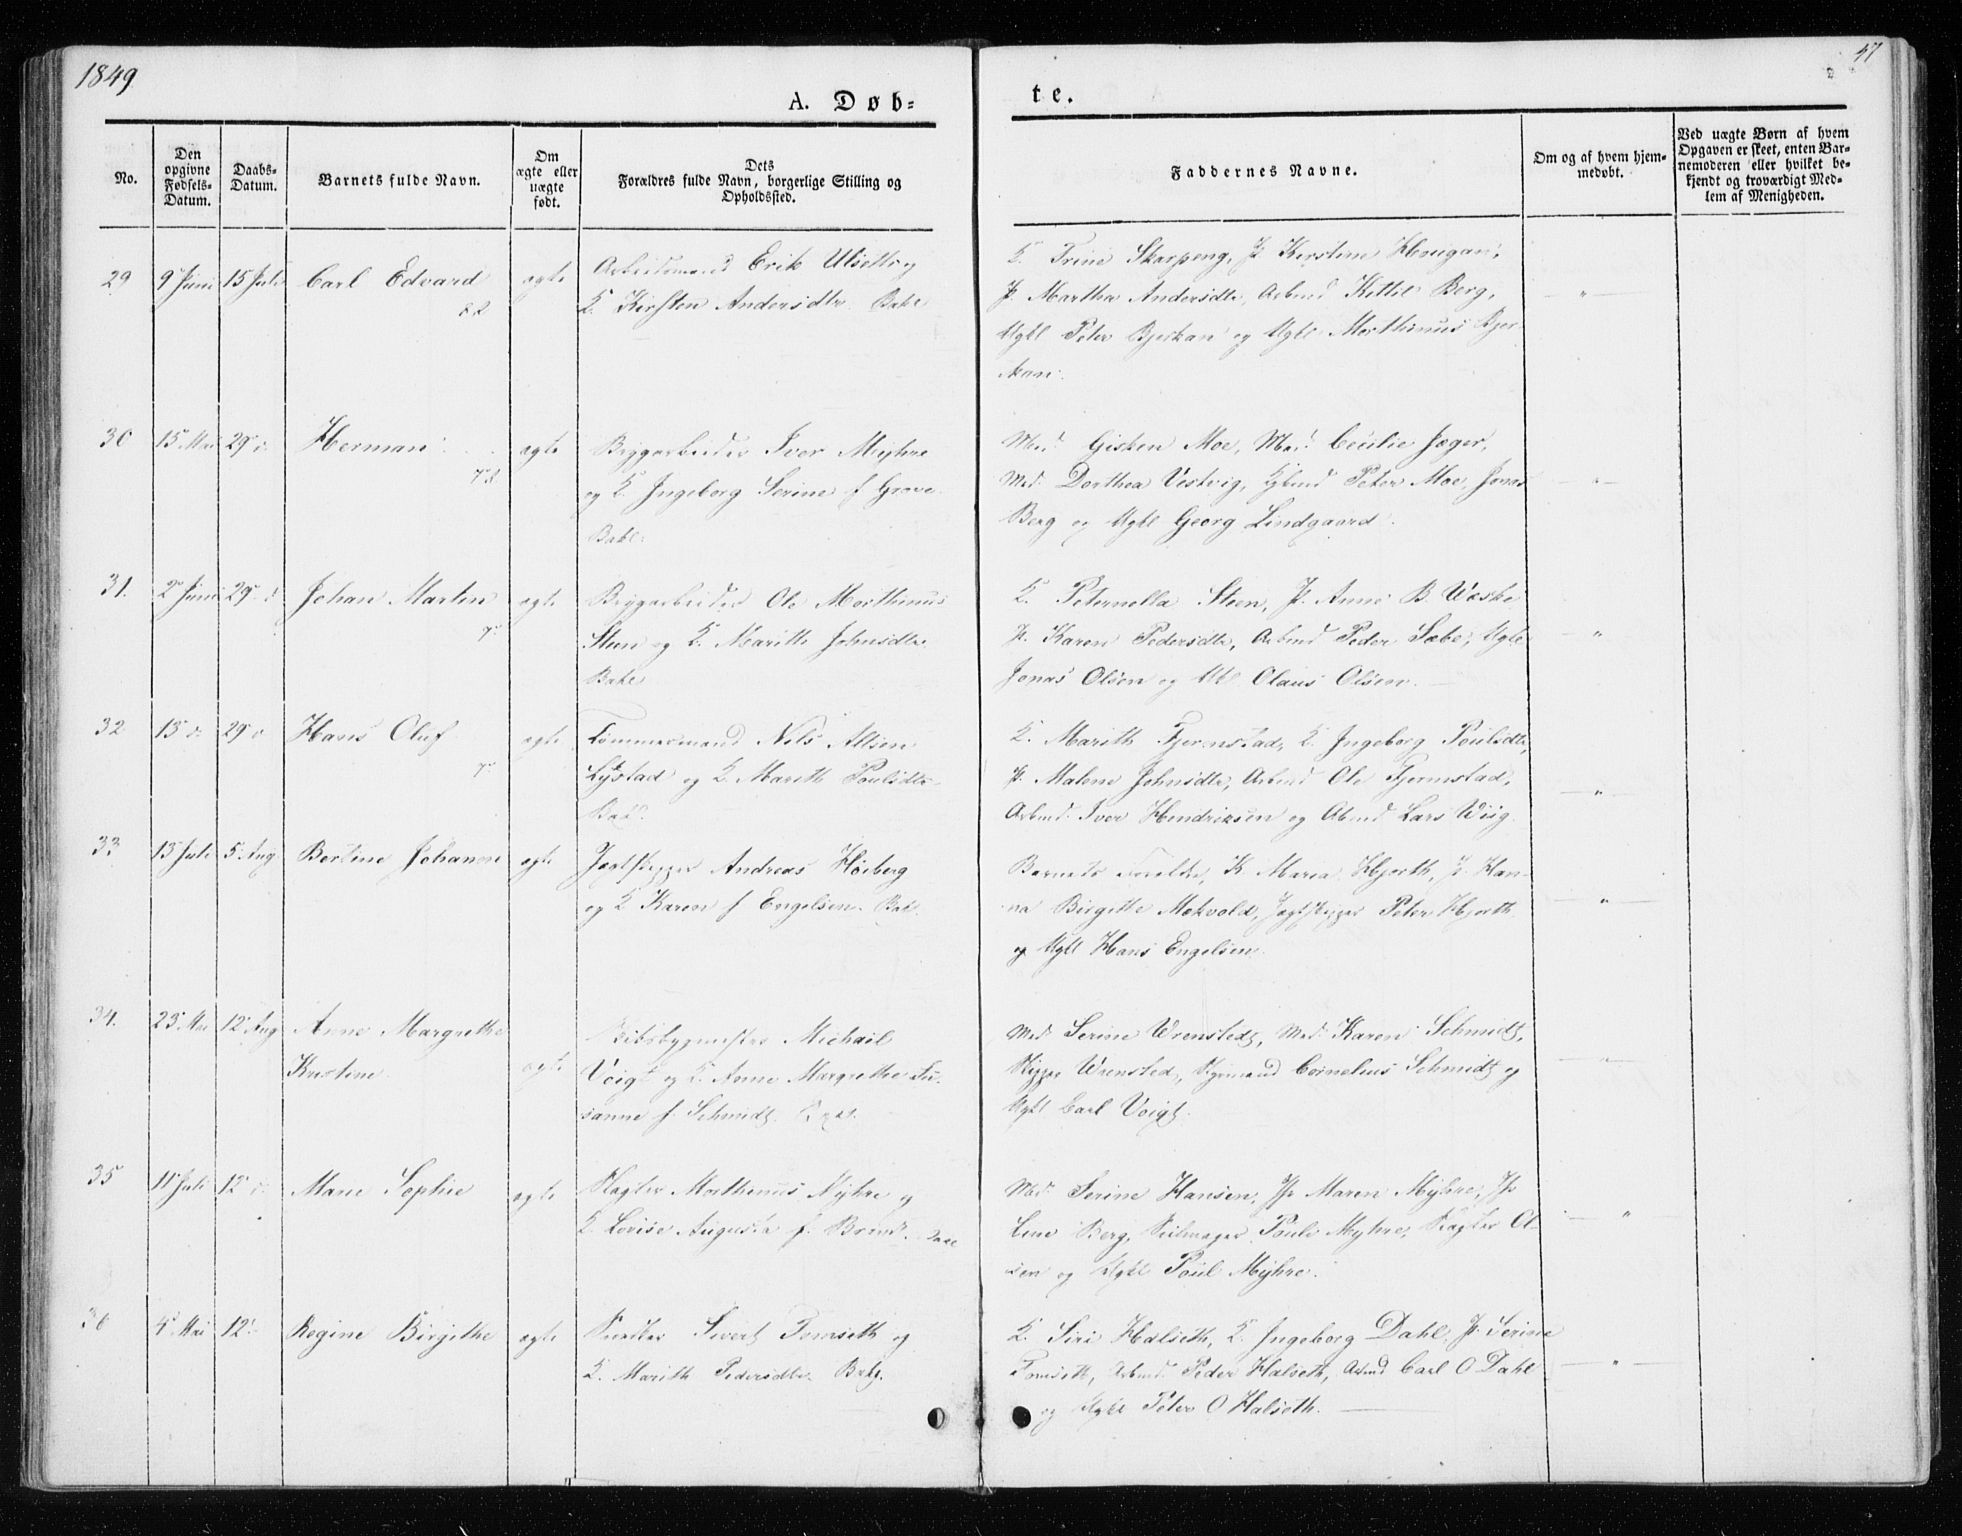 1849
47
A. Døb=
te.
No.
Den opgivne Fødsels-Datum.
Daabs-Datum.
Barnets fulde Navn.
Om ægte eller uægte født.
Dets Forældres fulde Navn, borgerlige Stilling og Opholdssted.
Faddernes Navne.
Om og af hvem hjemmedøbt.
Ved uægte Børn af hvem Opgaven er skeet, enten Barnemoderen eller hvilket bekjendt og troværdigt Medlem af Menigheden.
29 9 Juni 15 Juli Carl Edvard ægte Arbeidsmand Erik Ulseth og
K. Kirsten Andersdtr. Bakl
K. Trine Skarpeng, P. Kirstine Haugan,
P. Martha Andersdtr, Arbmd Kittil Berg,
Ugkl Peter Bjerkan og Ugkl Morthinus Bjer-
kan.
30 15 Mai 29 d. Herman ægte Bryggarbeider Iver Myhre
og K. Ingeborg Serine f. Grove
Bakl.
Mad. Gisken Moe, Mad. Cecilie Jæger,
Mad. Dorthea Vestvig, Peter Moe, Jonas
Berg og Ugkl Georg Lindgaard.
31. 2 Juni 29 d. Johan Martin ægte Bryggarbeider Ole Morthinus
Steen og K. Marith Johnsdtr.
Bakl
K. Peternella Steen, P. Anne B. Weske
P. Karen Pedersdtr, Arbmd Peder Sæbe, Ugkl
Jonas Olsen og Ugkl Claus Olsen.
32 15 d. 29 d Hans Oluf ægte Tømmermand Nils Allsen
Lystad og K. Marith Poulsdtr
Bakl.
K. Marith Fjermstad, K. Ingeborg Poulsdtr,
P. Malene Johnsdtr, Arbmd Ole Fjermstad,
Arbmd. Iver Hendriksen og Abmd Lars Wiig.
33 13 Juli 5 Aug Bertine Johanne ægte Jagtskipper Andreas Høiberg
og K Karen f. Engelsen. Bakl.
Barnets Forældre, K. Maria Hjorth, P. Han-
na Birgitte Mokvold, Jagtskipper Peter Hjorth
og Ugkl Hans Engelsen.
34. 23 Mai 12 Aug Anne Margrethe
Kristine ægte
Skibsbygmester Michail
Voigt og K. Anne Margrethe Su-
sanne f. Schmidt. Bakl.
Mad Serine Wrensted, Mad. Karen Schmidt,
Skipper Wrensted, Styrmand Cornelius Schmidt og
Ugkl Carl Voigt.
35 11 Juli 12 d. Marie Sophie ægte Slagter Morthinus Myhre og
K. Lovise Augusta f. Brun. Bakl
Mad. Serine Hansen, Maren Myhre,
Line Berg, Seilmager Poul Myhre, Slagter Ol-
sen og Ugkl Poul Myhre.
36 4 Mai 12 Regine Birgithe ægte Snedker Sivert Tomseth og
K. Marith Pedersdtr. Bakl.
K. Siri Halseth, K. Ingeborg Dahl, P. Serine
Tomseth, Arbmd. Peder Halseth, Arbmd Carl O Dahl
og Ugkl Peter O Halseth.